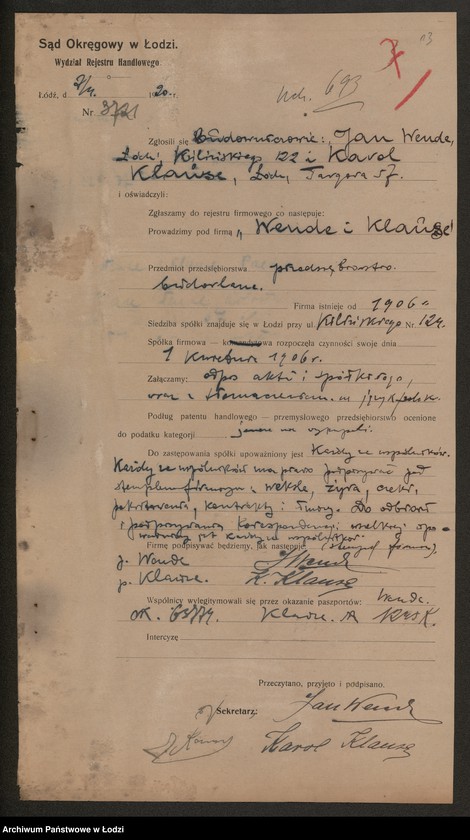 Sąd Okręgowy w Łodzi.
Wydział Rejestru Handlowego
Łódź, d. 1920 r.
Nr 3721
693
Zgłosili się budowniczowie: Jan Wende,
Łódź, Kilińskiego 122 i Karol
Klauze, Łódź, Targowa 57.
i oświadczyli:
Zgłaszamy do rejestru firmowego co następuje:
Prowadzimy pod firmą „Wende i Klauze"
Przedmiot przedsiębiorstwa
budowlane.
Firma istnieje od 1906 r.
Siedziba spółki znajduje się w Łodzi przy ul. Kilińskiego Nr. 124.
Spółka firmowa — komandytowa rozpoczęła czynności swoje dnia
1 kwietnia 1906 r.
Załączamy: odpis aktu spółkowego,
wraz z tłomaczeniem
Podług patentu handlowego — przemysłowego przedsiębiorstwo ocenione
do podatku kategorji
Do zastępowania spółki upoważniony jest Każdy ze wspólników.
Każdy ze wspólników ma prawo podpisywać pod
stemplem firmowym: weksle, żyra, czeki,
kontrakty i umowy. Do odbioru
i podpisywania korespondencji wszelkiej
jest każdy ze wspólników.
Firmę podpisywać będziemy, jak następuje: (stempel firmowy)
p. Wende J. Wende
p. Klauze. K. Klauze
Wspólnicy wylegitymowali się przez okazanie paszportów: Wende.
Klauze.
Intercyzę
Przeczytano, przyjęto i podpisano.
Jan Wende
Sekretarz:
Karol Klauze
Archiwum Państwowe w Łodzi